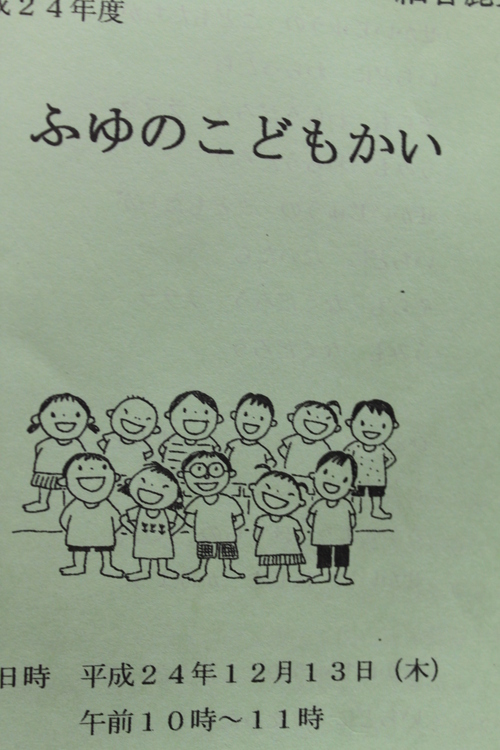 成24年度
ふゆのこどもかい
日時 平成24年12月13日（木）
午前10時～11時